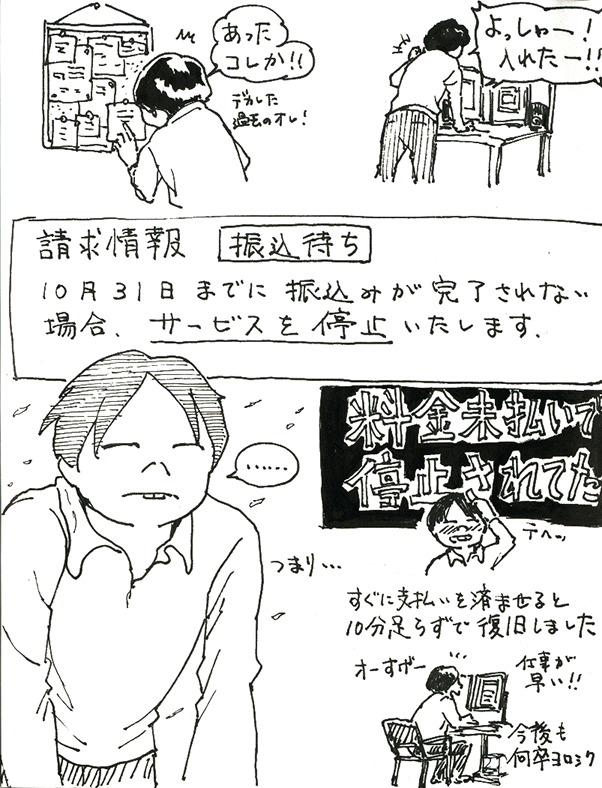 あった
コレか!!
デカした
過去のオレ!
よっしゃー!
入れたー!!
請求情報 振込待ち
10月31日までに振込みが完了されない
場合、サービスを停止いたします.
……
料金未払いで
停止されてた
テヘッ
つまり…
すぐに支払いを済ませると
10分足らずで復旧しました
オーすげー
仕事が
早い!!
今後も
何卒ヨロシク